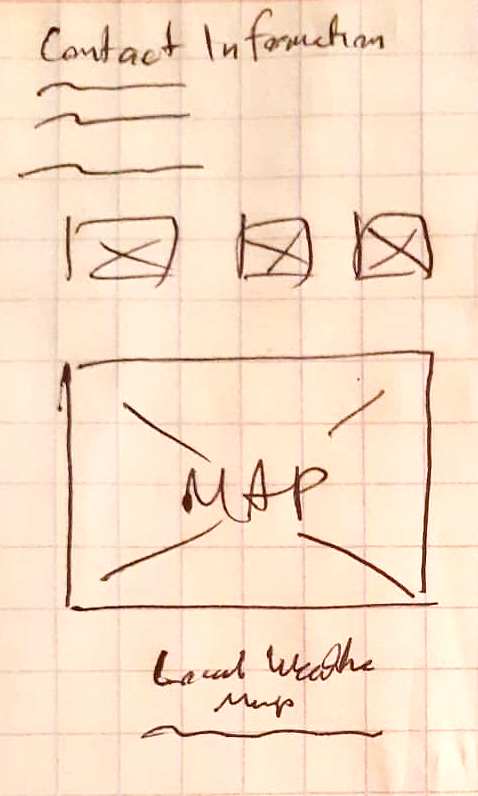 Contact Information
MAP
Local Weathe
Map